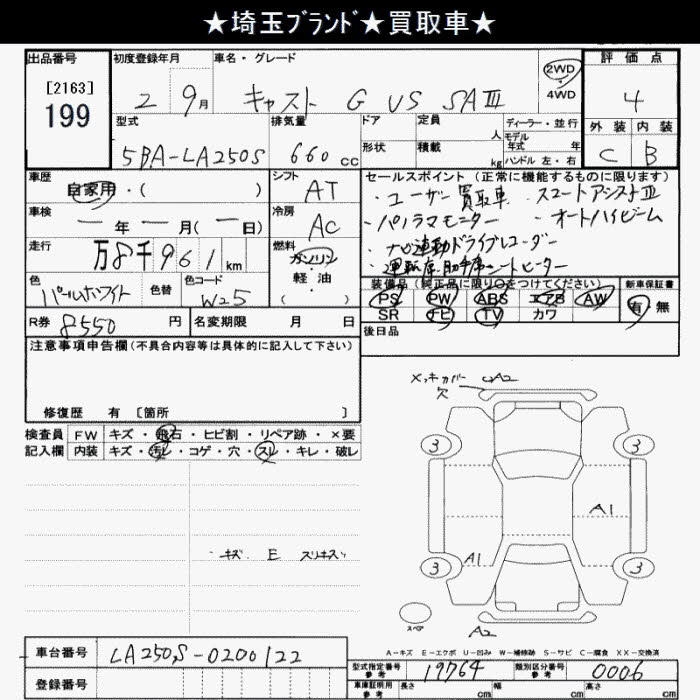 ★埼玉ﾌﾞﾗﾝﾄﾞ★買取車★
出品番号 初度登録年月 車名・グレード 2WD 4WD 評価点
[2163]
199
2 9月 キャスト G VS SAⅢ 4
型式 排気量 ドア 定員 人 ディーラー・並行 外装 内装
モデル年式 年
5BA-LA250S 660cc 形状 積載 kg ハンドル 左・右 C B
車歴 シフト セールスポイント (正常に機能するものに限ります)
自家用・( ) AT ・ユーザー買取車 ・スマートアシストⅢ
車検 冷房 ・パノラマモニター ・オートハイビーム
ー年ー月(ー日) AC ・ナビ連動ドライブレコーダー
走行 燃料 ・運転席助手席シートヒーター
万8千961km ガソリン
軽油
( )
色 色替 色コード 装備品 (純正品に限り○をつけてください) 新車保証書
パールホワイト W25 PS PW ABS エアB AW 有 無
SR ナビ TV カワ
R券 8550円 名変期限 月 日 後日品
注意事項申告欄(不具合内容等は具体的に記入して下さい)
修復歴 有 [箇所 ]
検査員 FW キズ・飛石・ヒビ割・リペア跡・×要
記入欄 内装 キズ・汚レ・コゲ・穴・スレ・キレ・破レ
キズ E スリキズ
穴 A2
3 3
A1
A1
3 3
スペア
A2
A-キズ E-エクボ U-凹み W-補修跡 S-サビ C-腐食 XX-交換済
車台番号 LA250S-0200122
型式指定番号 参考 19764 類別区分番号 参考 0006
登録番号 車庫証明用 参考 長さ cm 幅 cm 高さ cm